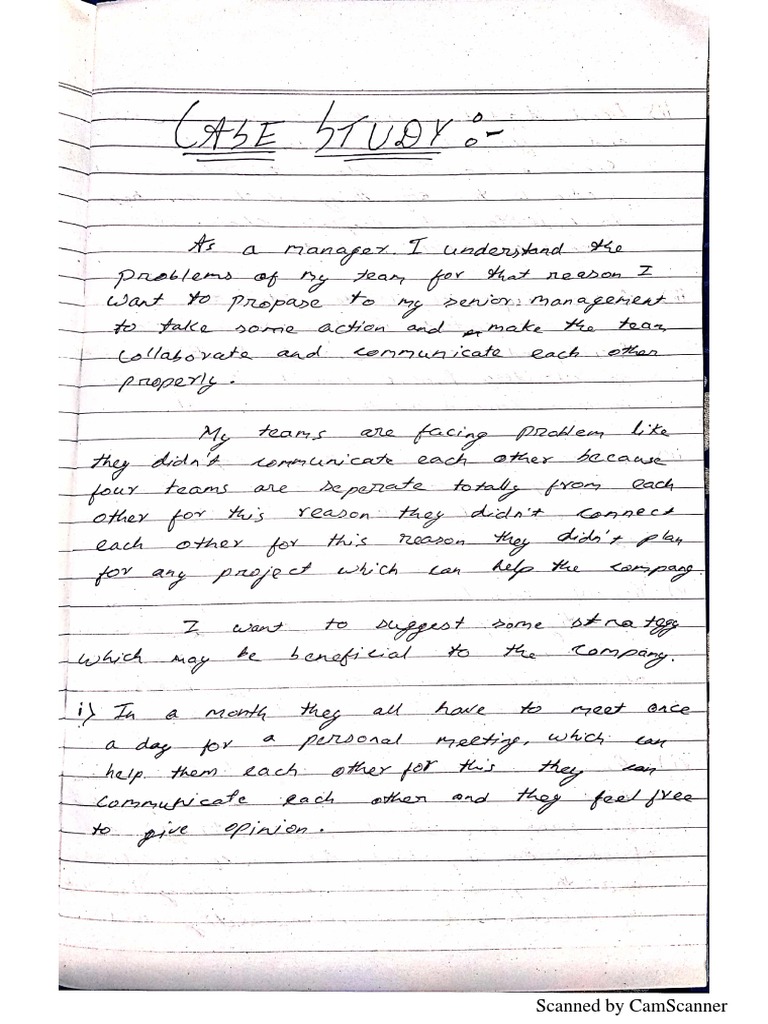 CASE STUDY :-
As a manager I understand the
problems of my team for that reason I
want to propase to my senior management
to take some action and make the team
collaborate and communicate each other
properly.
My teams are facing problem like
they didn't communicate each other because
four teams are seperate totally from each
other for this reason they didn't connect
each other for this reason they didn't plan
for any project which can help the company
I want to suggest some strategy
which may be beneficial to the company.
i) In a month they all have to meet once
a day for a personal meeting, which can
help them each other for this they can
communicate each other and they feel free
to give opinion.
Scanned by CamScanner